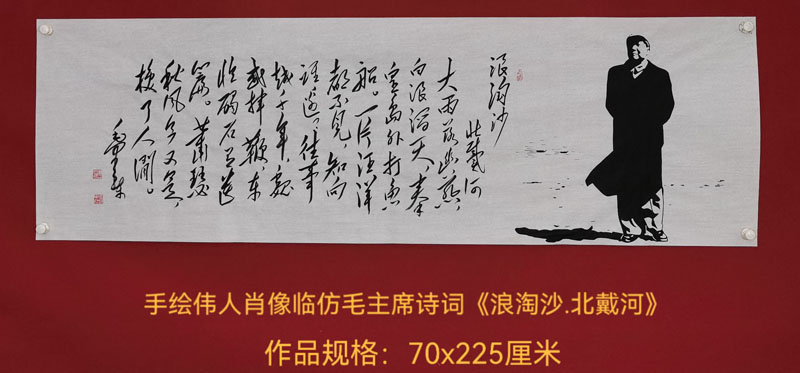 浪淘沙
北戴河
大雨落幽燕，
白浪滔天，秦
皇島外打魚
船。一片汪洋
都不見，知向
誰邊。往事
越千年，魏
武揮鞭，东
临碣石有遺
篇。蕭瑟
秋風今又是，
換了人間。
手绘伟人肖像临仿毛主席诗词《浪淘沙.北戴河》
作品规格：70x225厘米